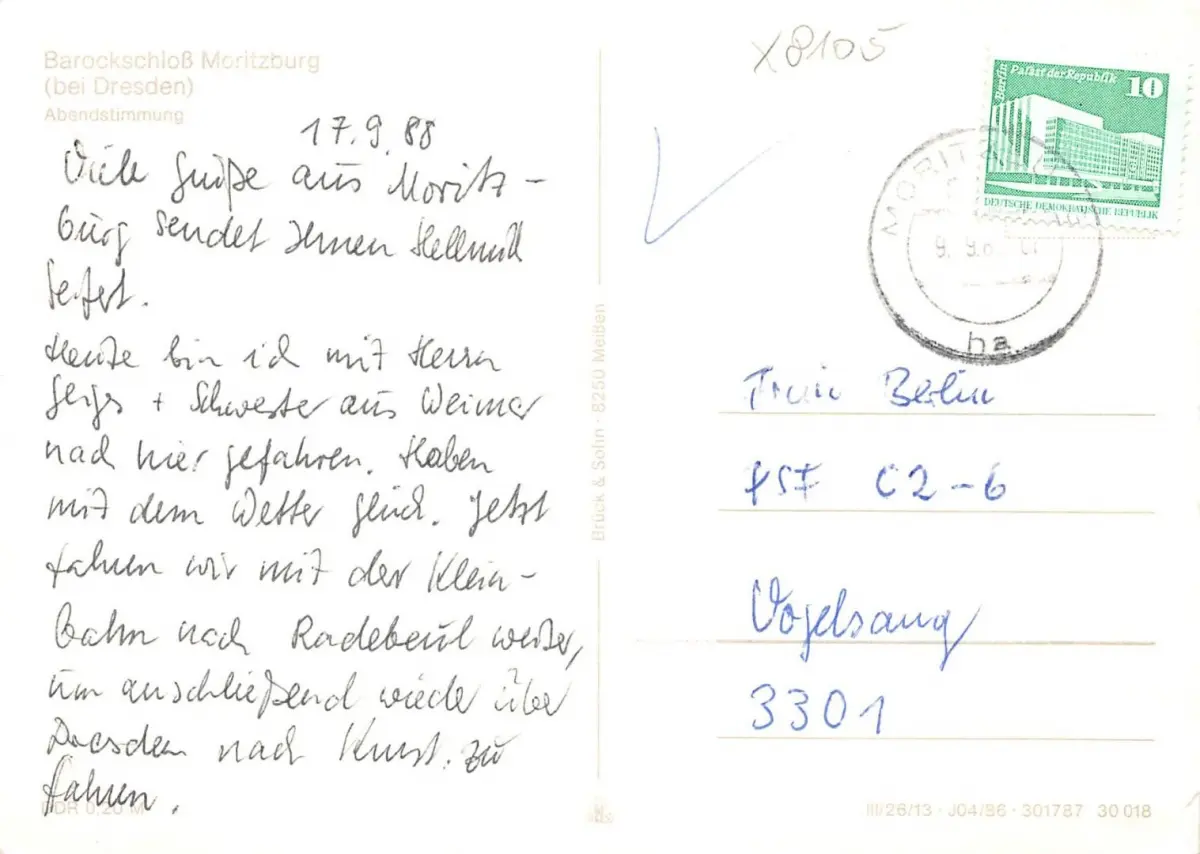 Barockschloß Moritzburg
(bei Dresden)
Abendstimmung
17.9.88
Viele Grüße aus Moritz-
burg sendet Ihnen Hellmuth
Seifert.
Heute bin ich mit Herrn
+ Schwester aus Weimar
nach hier gefahren. Haben
mit dem Wetter Glück. Jetzt
fahren wir mit der Klein-
bahn nach Radebeul weiter,
um anschließend wieder über
Dresden nach zu
fahren.
DDR 0,20 M
Brück & Sohn · 8250 Meißen
X8105
Berlin Palast der Republik 10
DEUTSCHE DEMOKRATISCHE REPUBLIK
MORITZBURG
ha
Berlin
PSF C2-6
Vogelsang
3301
III/26/13 · J04/86 · 301787 30 018